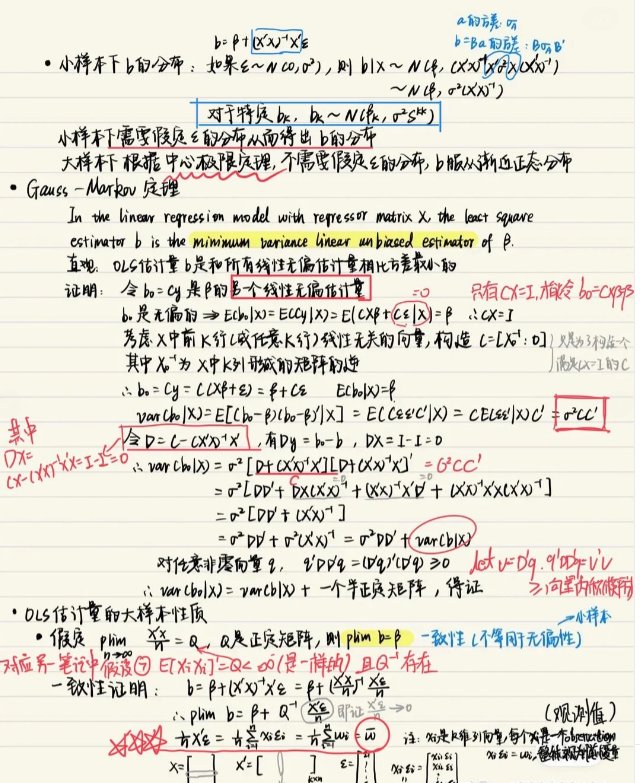 b = β + (X'X)⁻¹X'ε
a的方差: σa
b=Ba的方差: BσaB'
• 小样本下b的分布: 如果ε~N(0,σ²), 则 b|X ~ N(β, (X'X)⁻¹X'σ²X(X'X)⁻¹)
~ N(β, σ²(X'X)⁻¹)
对于特定bₖ, bₖ~N(βₖ, σ²Sᵏᵏ)
小样本下需要假定ε的分布从而得出b的分布
大样本下 根据中心极限定理, 不需要假定ε的分布, b服从渐近正态分布
• Gauss-Markov 定理
In the linear regression model with regressor matrix X, the least square
estimator b is the minimum variance linear unbiased estimator of β.
直观: OLS估计量b是和所有线性无偏估计量相比方差最小的
证明: 令b₀=Cy是β的另一个线性无偏估计量
=0
只有CX=I, 才能令b₀=CXβ=β
b₀是无偏的 ⇒ E(b₀|X)=E(Cy|X)=E(CXβ+Cε|X)=β ∴CX=I
考虑X中前K行(或任意K行)线性无关的向量, 构造 C=[X₀⁻¹:0]
只是为了构造一个
满足CX=I的C
其中X₀⁻¹为X中K列形成的矩阵的逆
∴b₀=Cy=C(Xβ+ε)=β+Cε E(b₀|X)=β
var(b₀|X)=E[(b₀-β)(b₀-β)'|X] = E(Cεε'C'|X) = CE(εε'|X)C' = σ²CC'
其中
DX=
CX-(X'X)⁻¹X'X=I-I=0
令D=C-(X'X)⁻¹X', 有Dy=b₀-b, DX=I-I=0
∴var(b₀|X)=σ²[D+(X'X)⁻¹X'][D+(X'X)⁻¹X']' = σ²CC'
C
=σ²[DD'+DX(X'X)⁻¹+(X'X)⁻¹X'D'+(X'X)⁻¹X'X(X'X)⁻¹]
=σ²[DD'+(X'X)⁻¹]
=σ²DD'+σ²(X'X)⁻¹=σ²DD'+var(b|X)
对任意非零向量q, q'DD'q=(D'q)'(D'q)≥0
let v=D'q, q'DD'q=v'v
∴var(b₀|X)=var(b|X)+一个半正定矩阵, 得证
• OLS估计量的大样本性质
小样本
• 假定 plim n→∞ X'X/n = Q, Q是正定矩阵, 则plim b=β 一致性(不等同于无偏性)
对应另一笔记中假设⑦ E[XiXi']=Q<∞(是一样的) 且Q⁻¹存在
一致性证明: b=β+(X'X)⁻¹X'ε=β+(X'X/n)⁻¹ X'ε/n
∴plim b=β+Q⁻¹ X'ε/n 即证 X'ε/n →0
(观测值)
1/n X'ε = 1/n Σxiεi = 1/n Σwi = w̄
注: xi是K维列向量, 每个xi是一个observation
xiεi=wi,
X=[ ] X'=[ ] ε=[ ] xiεi=[ ]